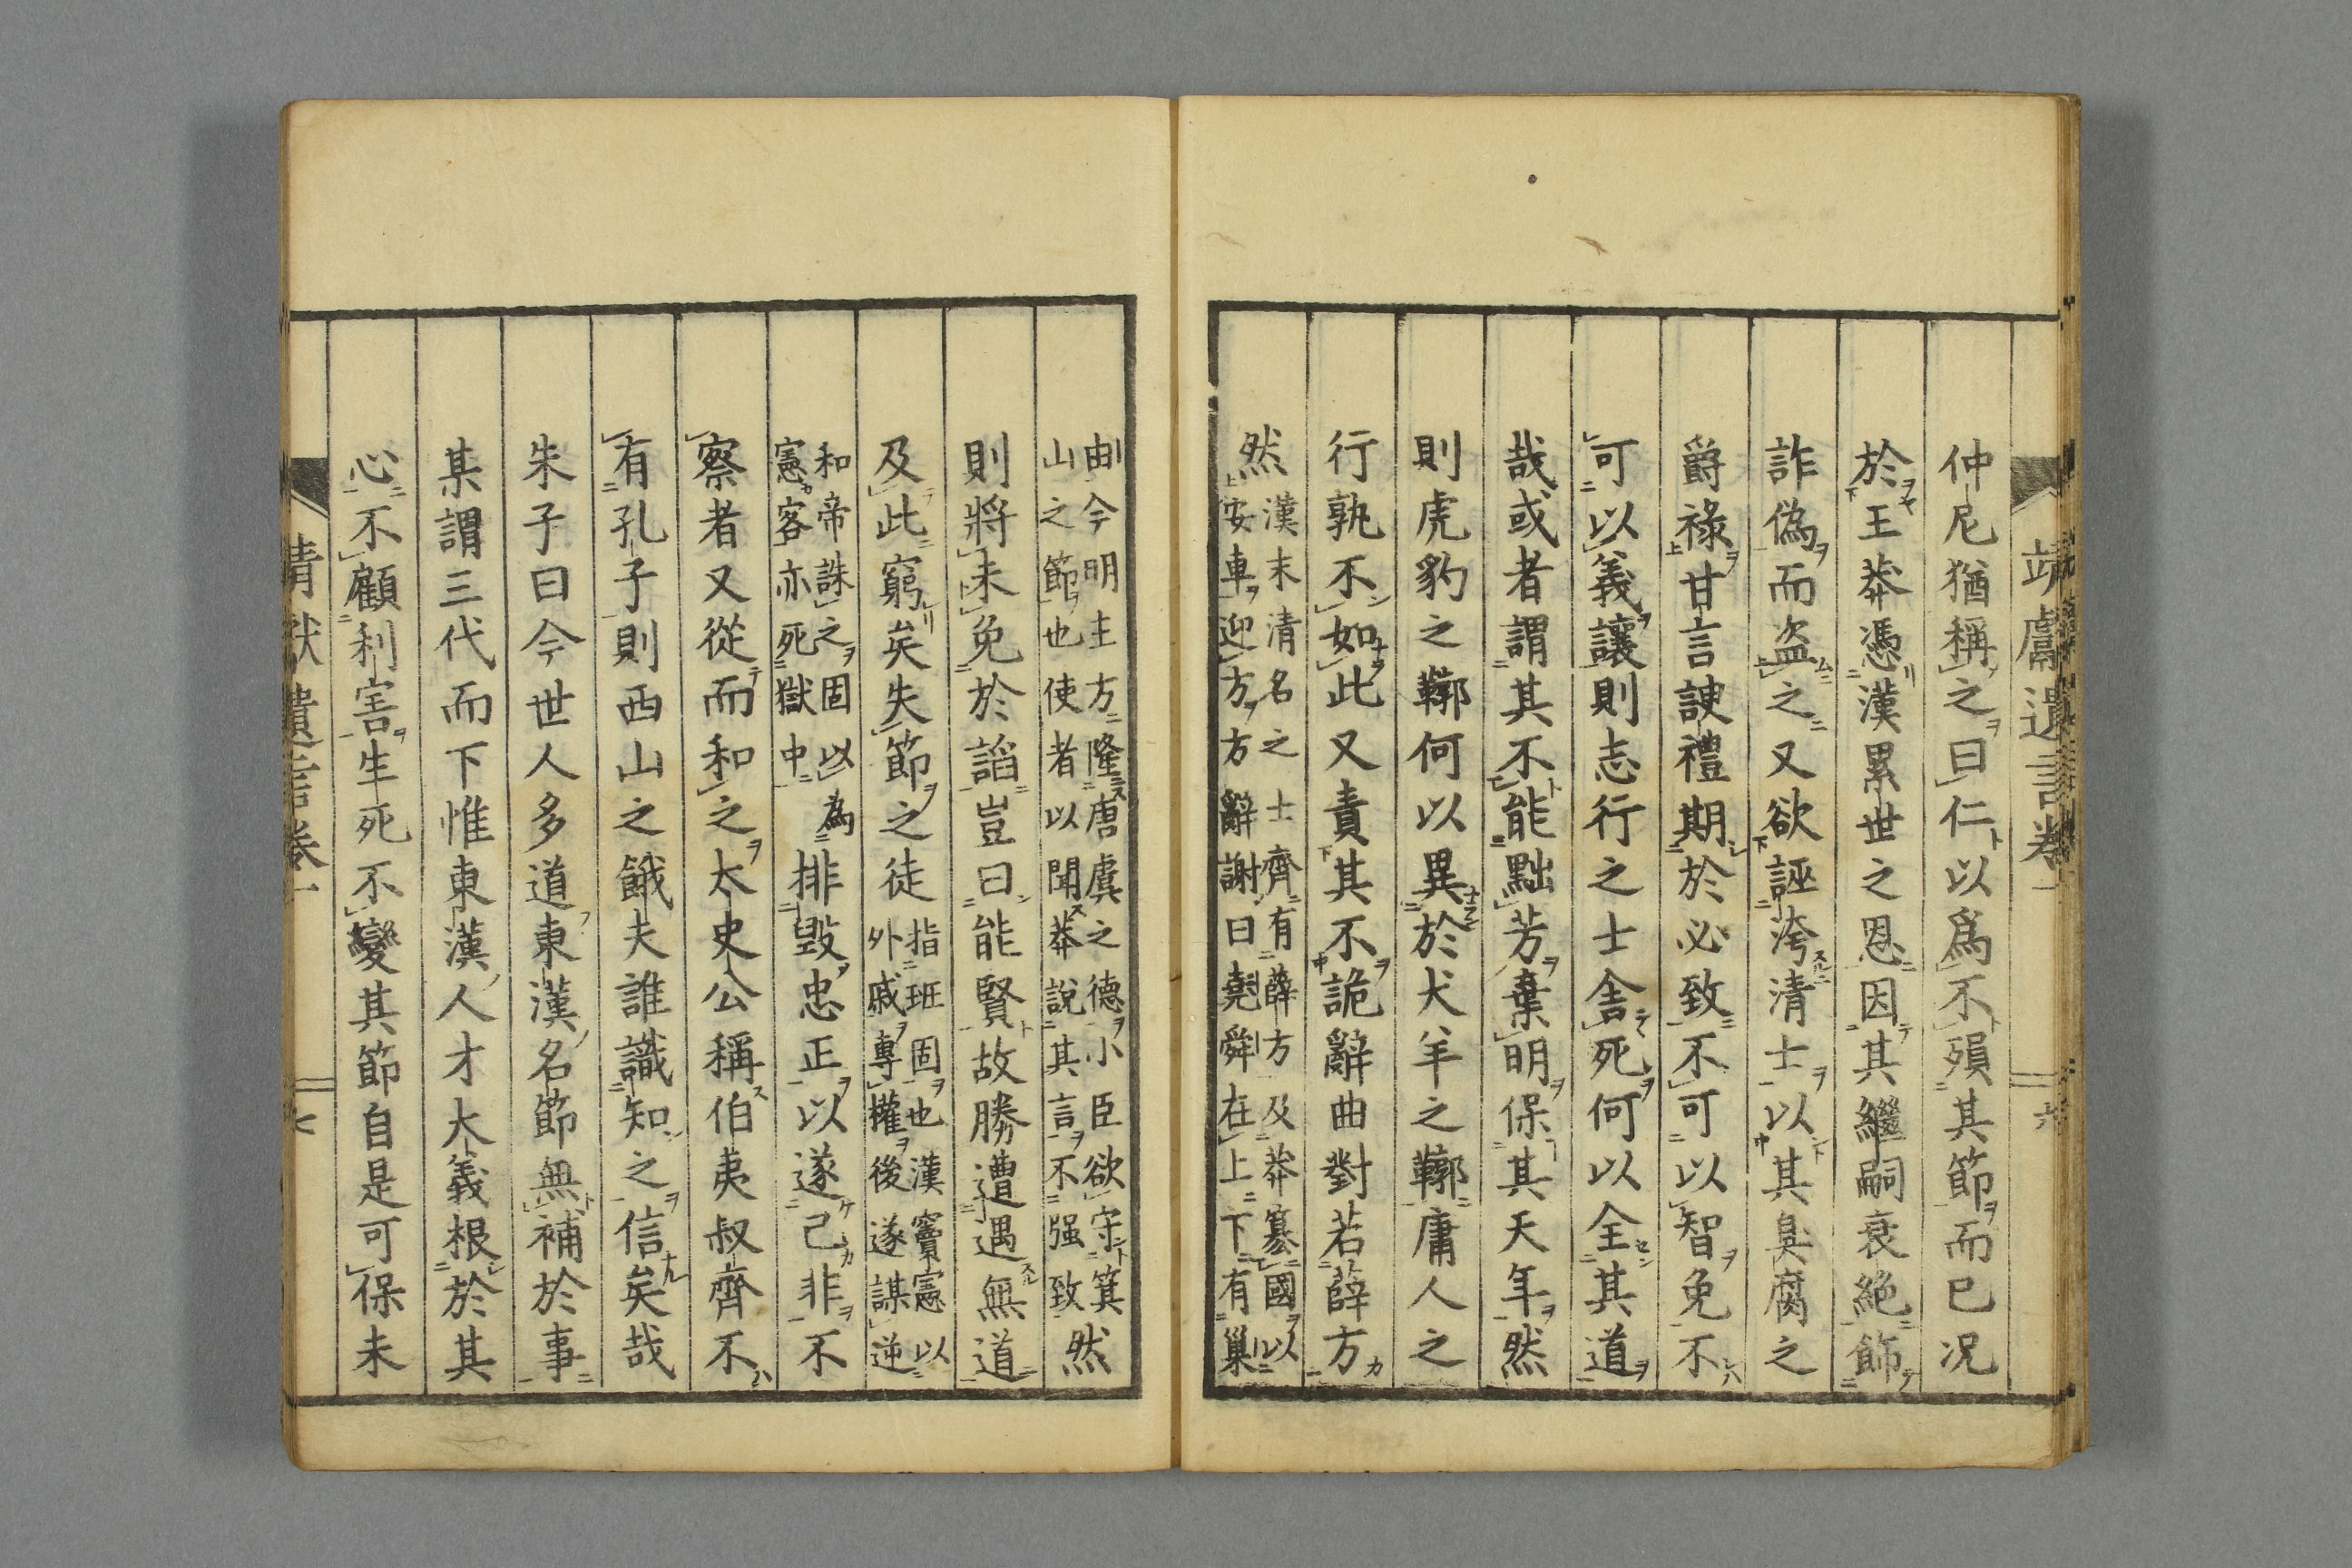 靖獻遺言卷一
六
仲尼猶稱之曰仁以爲不殞其節而已况
於王莽憑漢累世之恩因其繼嗣衰絶飾
詐偽而盗之又欲誣洿清士以其臭腐之
爵祿甘言諛禮期於必致不可以智免不
可以義讓則志行之士舍死何以全其道
哉或者謂其不能黜芳棄明保其天年然
則虎豹之鞹何以異於犬羊之鞹庸人之
行孰不如此又責其不詭辭曲對若薛方
然漢末清名之士齊有薛方及莽簒國以
安車迎方方辭謝曰堯舜在上下有巢
由今明主方隆唐虞之德小臣欲守箕
山之節也使者以聞莽説其言不强致然
則將未免於謟豈曰能賢故勝遭遇無道
及此窮矣失節之徒指班固也漢竇憲以
外戚專權後遂謀逆
和帝誅之固以為
憲客亦死獄中排毀忠正以遂己非不
察者又從而和之太史公稱伯夷叔齊不
有孔子則西山之餓夫誰識知之信矣哉
朱子曰今世人多道東漢名節無補於事
某謂三代而下惟東漢人才大義根於其
心不顧利害生死不變其節自是可保未
靖獻遺言卷一
七